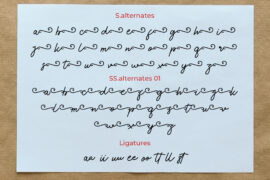 S.alternates
a b c d e f g h i
j k l m n o p q r
s t u v w x y z
SS.alternates 01
a b c d e f g h i j k
l m n o p q s t u v
w x y z
Ligatures
aa ii uu ee oo tt ll ff